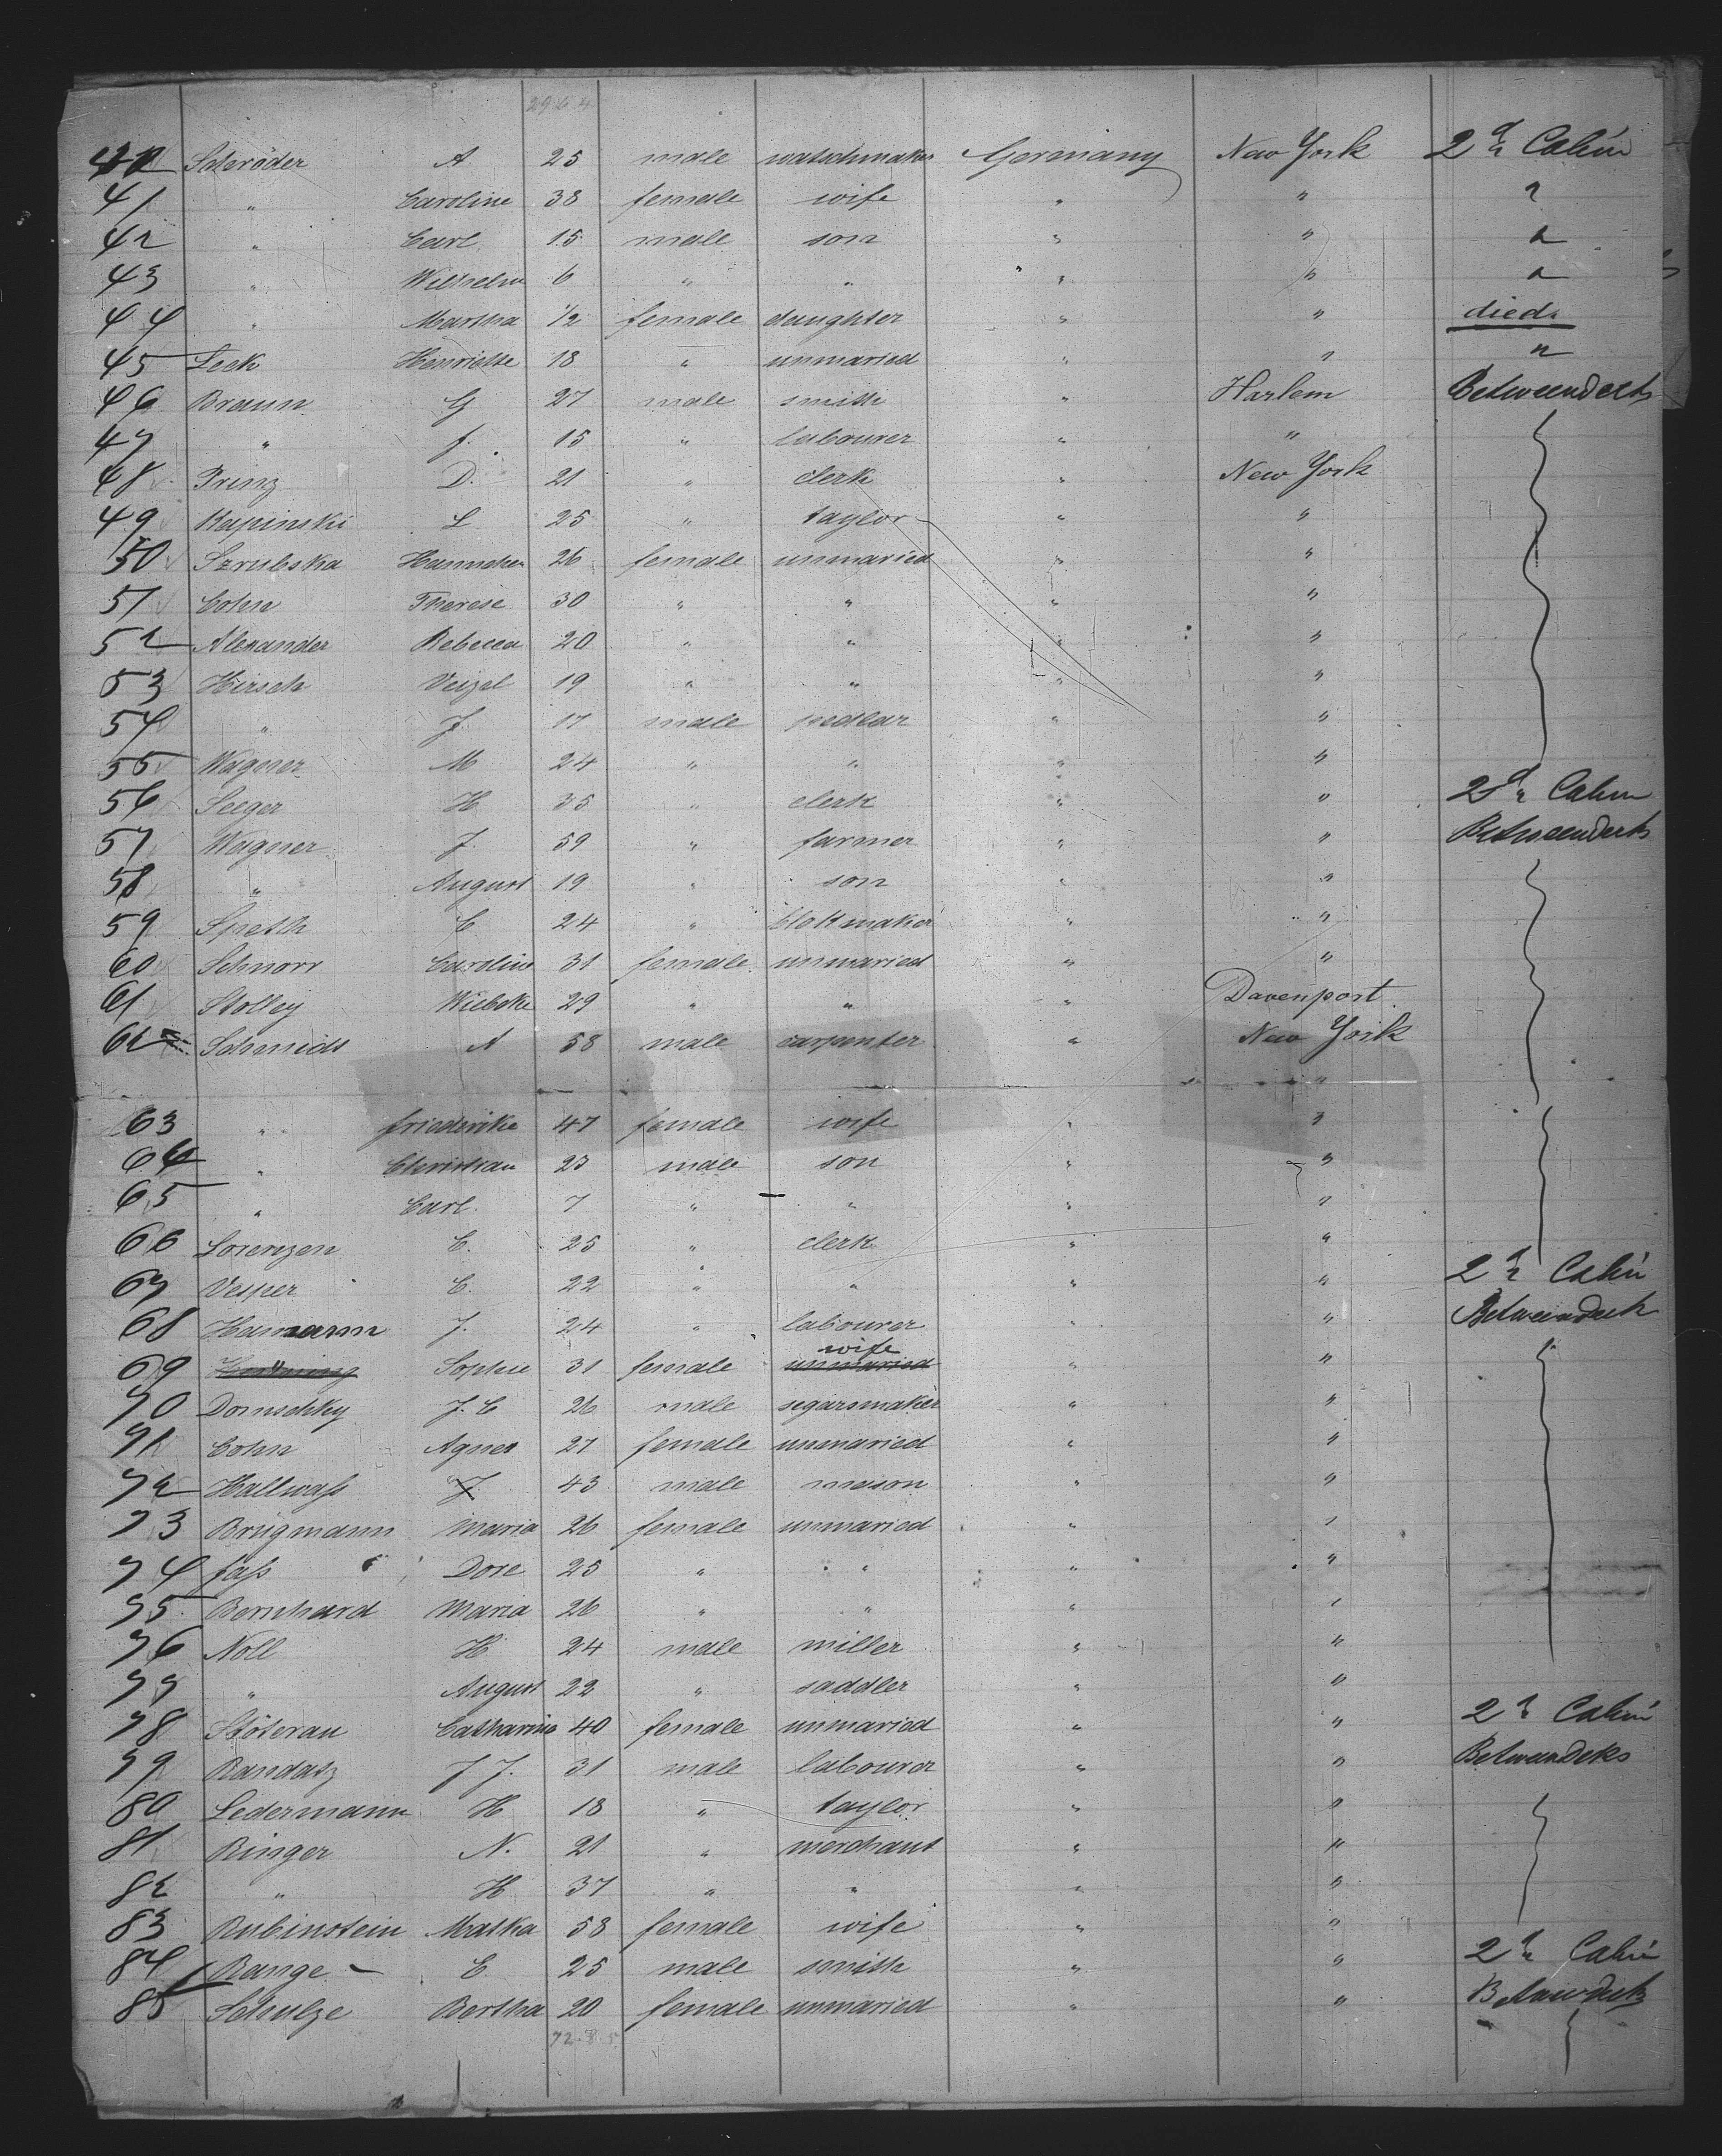 40 Schröder A 25 male watschmaker Germany New York 2d Cabin
41 " Caroline 38 female wife " " "
42 " Carl 15 male son " " "
43 " Wilhelm 6 " " " " "
44 " Martha 1/2 female daughter " " died
45 Leek Henriette 18 " unmaried " " "
46 Braun G 27 male smith " Harlem Betweendecks
47 " J. 15 " labourer " "
48 Prinz D. 21 " clerk " New York
49 Rapinski L 25 " taylor " "
50 Szrubska Hannchen 26 female unmaried " "
51 Cohn Therese 30 " " " "
52 Alexander Rebecca 20 " " " "
53 Hirsch Veizel 19 " " " "
54 " J. 17 male pedlar " "
55 Wagner M 24 " " " "
56 Seeger H 35 " clerk " " 2d Cabin
57 Wagner J. 59 " farmer " " Betweendecks
58 " August 19 " son " "
59 Speth C 24 " clokmaker " "
60 Schnorr Caroline 31 female unmaried " "
61 Stolley Wiebcke 29 " " " Davenport
62 Schmidt A 58 male carpenter " New York
"
63 " friederike 47 female wife " "
64 " Christian 23 male son " "
65 " Carl. 7 " " " "
66 Lorenzen C. 25 " clerk " "
67 Vesper C. 22 " " " " 2d Cabin
68 Hamann J. 24 " labourer " " Betweendeck
wife
69 Sophie 31 female unmaried " "
70 Domschky J. C 26 male segarsmaker " "
71 Cohn Agnes 27 female unmaried " "
72 Hallwaß J. 43 male mason " "
73 Brügmann Maria 26 female unmaried " "
74 faß Dore 25 " " " "
75 Bernhard Maria 26 " " " "
76 Noll H 24 male miller " "
77 " August 22 " saddler " "
78 Stöterau Catharine 40 female unmaried " " 2d Cabin
79 Randatz J J. 31 male labourer " " Betweendeks
80 Ledermann H 18 " taylor " "
81 Ringer N. 21 " merchant " "
82 " H 37 " " " "
83 Rubinstein Matka 58 female wife " "
84 Range - C 25 male smith " " 2d Cabin
85 Schulze Bertha 20 female unmaried " "